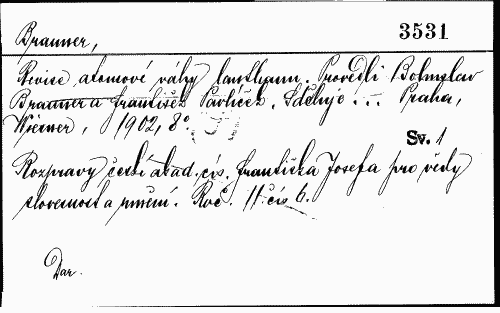 3531
Brauner,
Revise atomové váhy lanthanu. Provedli Bohuslav
Brauner a František Pavlíček. Sděluje ... Praha,
Wiesner, 1902, 8°.
Sv. 1
Rozpravy české akad. cís. Františka Josefa pro vědy
slovesnost a umění. Roč. 11. čís 6.
Dar.